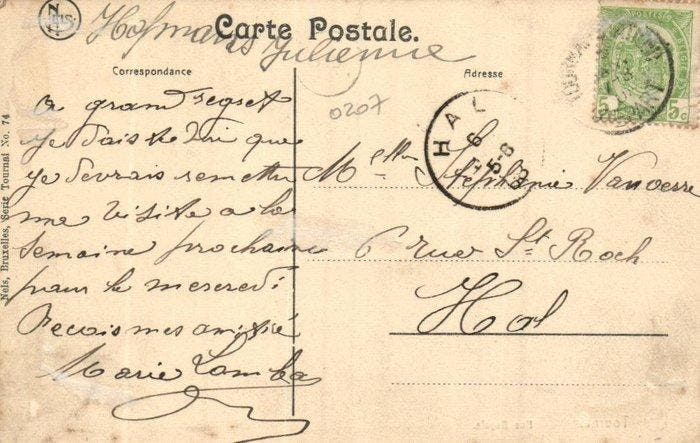 Carte Postale.
Hofmans Julienne
Correspondance
Adresse
0207
a grand regret
je dois te dire que
je devrais remettre
ma visite a la
semaine prochaine
pour le mercredi
Recois mes amitié
Marie Lomba
Melle Stéphanie Vanverre
6 rue St Roch
Hal
HAL
6
5-6
5 C
Nels, Bruxelles, Serie Tournai No. 74